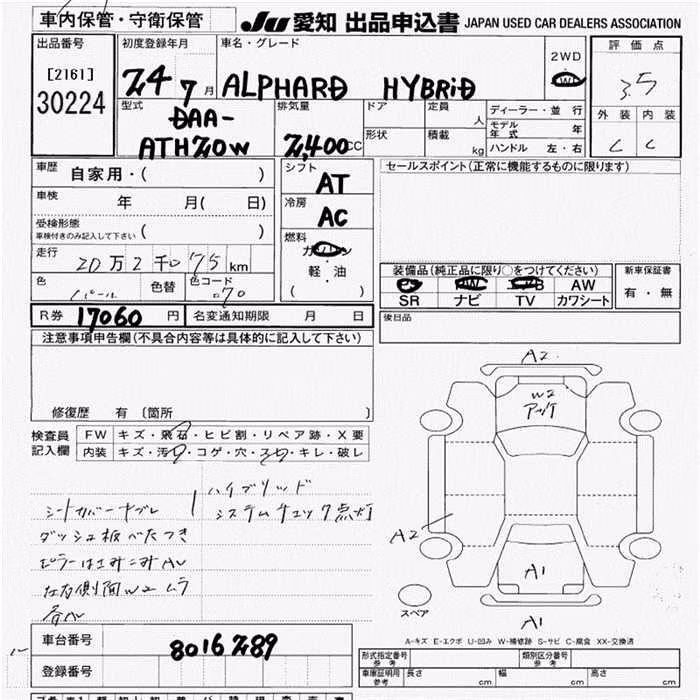 車内保管・守衛保管
JU 愛知 出品申込書 JAPAN USED CAR DEALERS ASSOCIATION
出品番号
[2161]
30224
初度登録年月
24 7 月
車名・グレード
ALPHARD HYBRID
2WD
評価点
3.5
外装 内装
C C
型式
DAA-
ATH20W
排気量
2,400 CC
ドア
形状
定員
人
積載
kg
ディーラー・並行
モデル年式 年
ハンドル 左・右
車歴
自家用・( )
車検
年 月( 日)
受検形態
車検付きのみ記入して下さい ( )
走行
20万2千075km
色
パール
色替
色コード
070
シフト
AT
冷房
AC
燃料
ガソリン
軽・油
( )
セールスポイント(正常に機能するものに限ります)
装備品(純正品に限り○をつけてください)
AW
SR ナビ TV カワシート
新車保証書
有・無
R券 17060 円 名変通知期限 月 日
後日品
注意事項申告欄(不具合内容等は具体的に記入して下さい)
修復歴 有 〔箇所 〕
検査員
記入欄
FW キズ・飛石・ヒビ割・リペア跡・X要
内装 キズ・汚れ・コゲ・穴・スレ・キレ・破レ
シートカバー
ハイブリッド
システムチェック点灯
ダッシュ板べたつき
左右側面W2ムラ
A2
W2
A2
A1
A1
スペア
A-キズ E-エクボ U-凹み W-補修跡 S-サビ C-腐食 XX-交換済
車台番号 8016289
登録番号
形式指定番号
参考
類別区分番号
参考
車庫証明用
参考
長さ cm 幅 cm 高さ cm